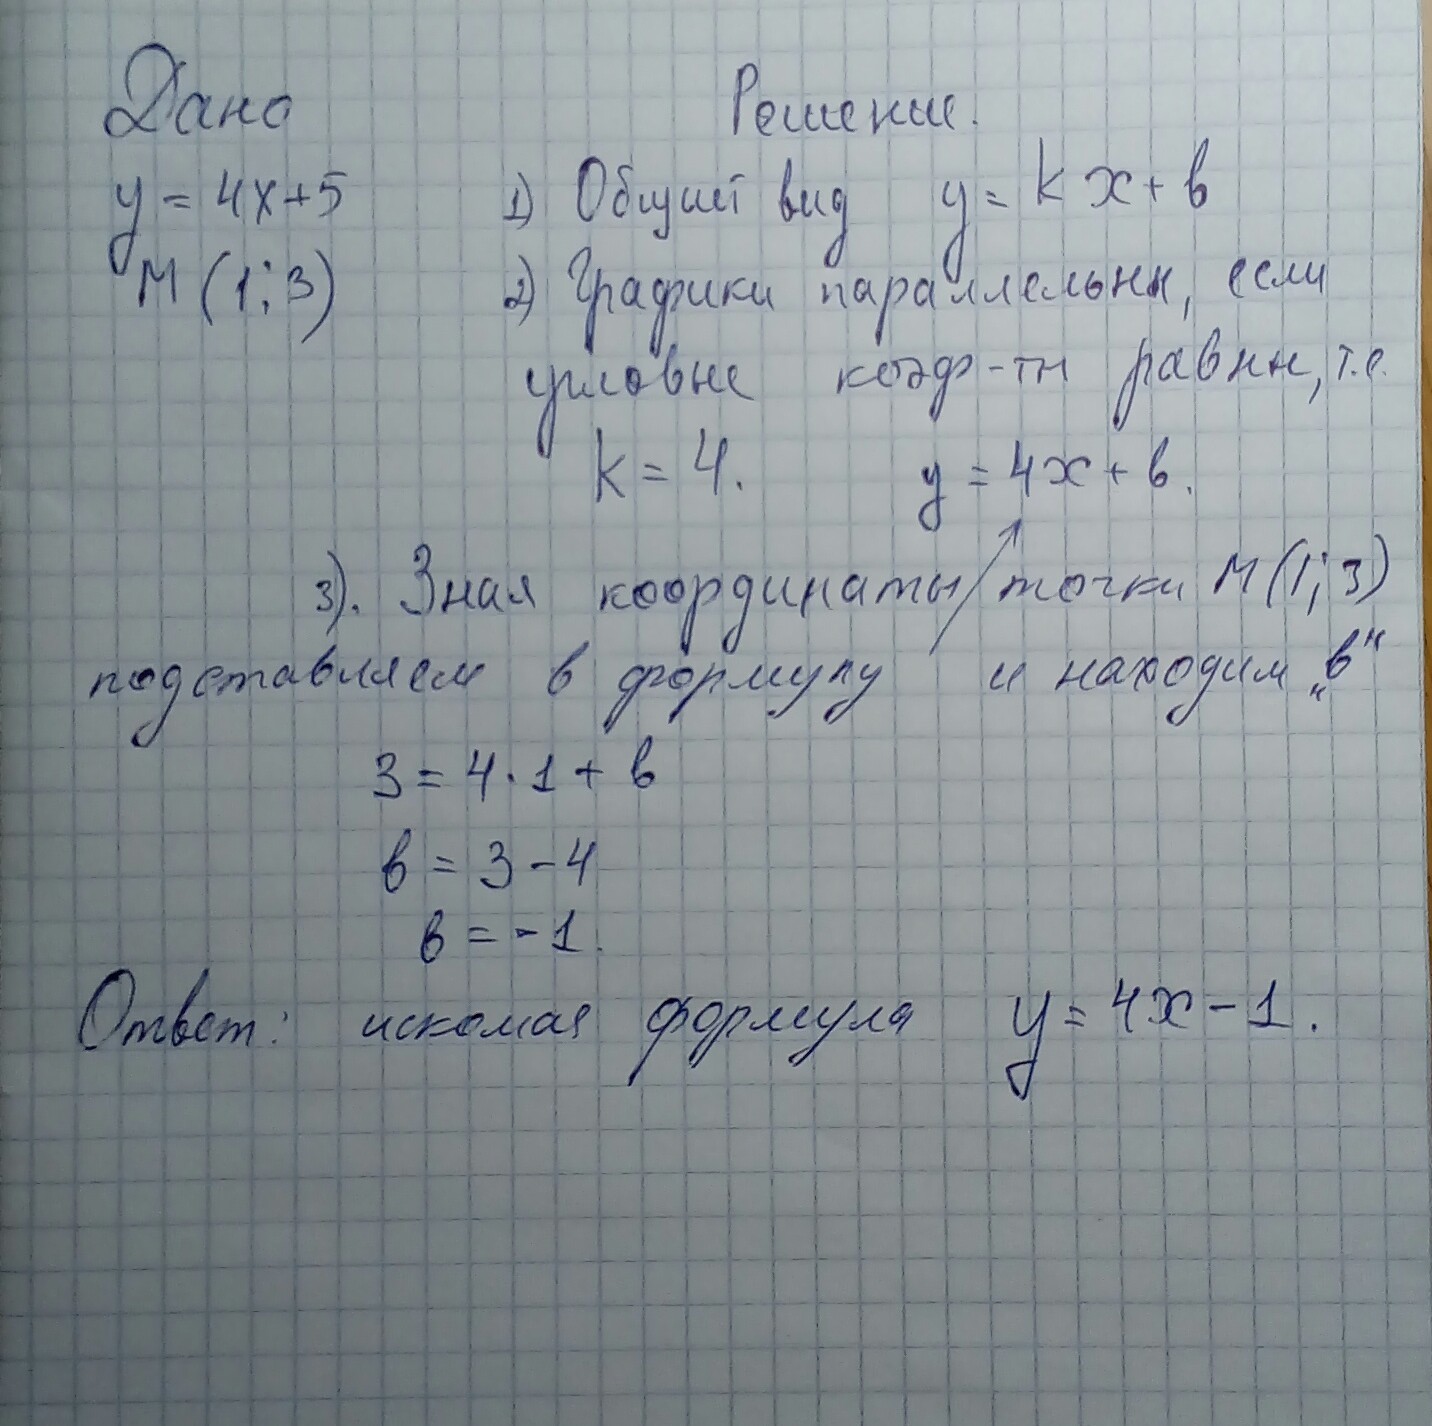 Дано
Решение.
y = 4x+5
1) Общий вид y = kx + b
M (1; 3)
2) Графики параллельны, если
угловые коэф-ты равны, т.е.
k = 4. y = 4x + b.
3). Зная координаты точки M(1; 3)
подставляем в формулу и находим „b"
3 = 4 · 1 + b
b = 3 - 4
b = -1.
Ответ: искомая формула y = 4x - 1.